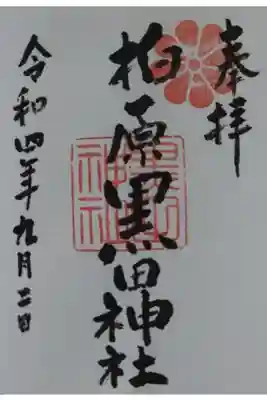 奉拝
柏原黒田神社
黒田
神社
令和四年九月二日